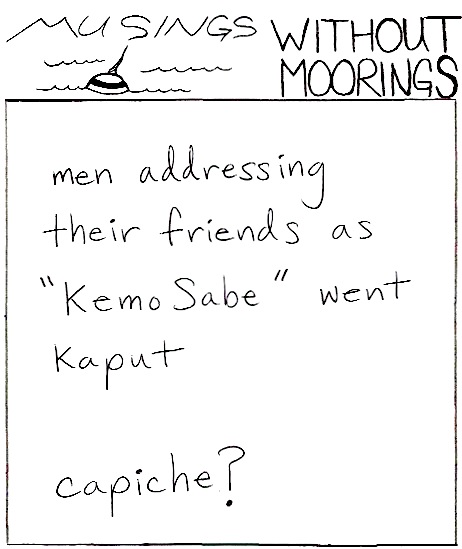 MUSINGS WITHOUT
MOORINGS
men addressing
their friends as
"Kemo Sabe" went
Kaput
capiche?